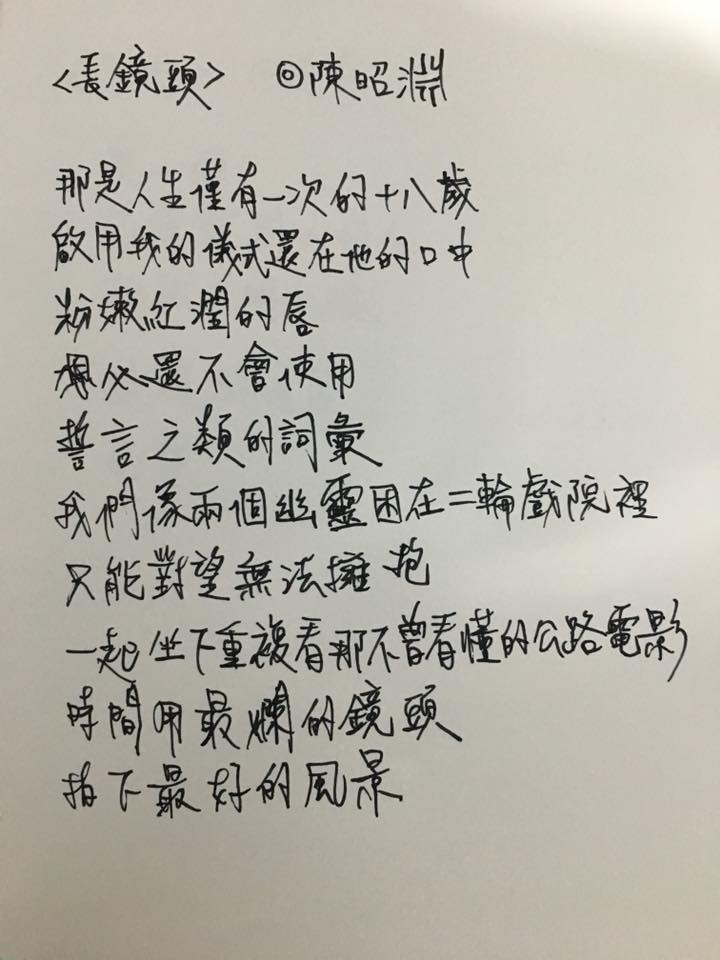 <長鏡頭> ◎陳昭淵
那是人生僅有一次的十八歲
啟用我的儀式還在他的口中
粉嫩紅潤的唇
想必還不會使用
誓言之類的詞彙
我們像兩個幽靈困在二輪戲院裡
只能對望無法擁抱
一起坐下重複看那不曾看懂的公路電影
時間用最爛的鏡頭
拍下最好的風景